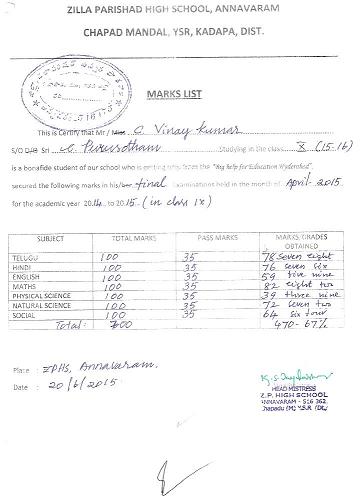 ZILLA PARISHAD HIGH SCHOOL, ANNAVARAM
CHAPAD MANDAL, YSR, KADAPA, DIST.
MARKS LIST
This is Certify that Mr / Miss C. Vinay Kumar
S/O D/o Sri C. Purusotham Studying in the class X (15-16)
is a bonafide student of our school who is the "Big help for Education Hyderabad".
secured the following marks in his/her final Examinations held in the month of April-2015
for the academic year 2014 to 2015 (in class IX)
SUBJECT TOTAL MARKS PASS MARKS MARKS/GRADES OBTAINED
TELUGU 100 35 78 seven eight
HINDI 100 35 76 seven six
ENGLISH 100 35 59 five nine
MATHS 100 35 82 eight two
PHYSICAL SCIENCE 100 35 39 three nine
NATURAL SCIENCE 100 35 72 seven two
SOCIAL 100 35 64 six four
Total: 700 470-67%
Place : ZPHS, Annavaram.
Date : 20/6/2015
HEAD MISTRESS
Z.P. HIGH SCHOOL
ANNAVARAM - 516 362.
Chapadu (M) Y.S.R. (Dt.)